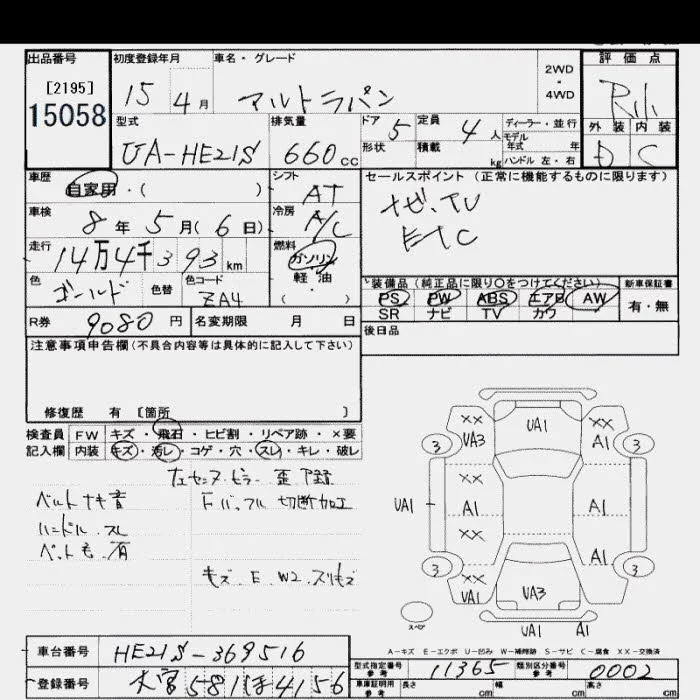 出品番号 初度登録年月 車名・グレード 2WD・4WD 評価点
[2195]
15058
15年 4月 アルトラパン
型式 排気量 ドア 5 定員 4人 ディーラー・並行
外装 内装
UA-HE21S 660cc 形状 積載 kg モデル年式 年
ハンドル 左・右
D C
車歴 シフト セールスポイント (正常に機能するものに限ります)
自家用・( ) AT
ナビ.TV
車検 冷房 A/C
8年 5月(6日) ETC
走行 14万4千393km 燃料 ガソリン
軽・油
( )
色 ゴールド 色替 色コード ZA4
装備品 (純正品に限り○をつけてください) 新車保証書
PS PW ABS エアB AW 有・無
SR ナビ TV カワ
R券 9080円 名変期限 月 日
後日品
注意事項申告欄(不具合内容等は具体的に記入して下さい)
修復歴 有 [箇所 ]
検査員 FW キズ・飛石・ヒビ割・リペア跡・×要
記入欄 内装 キズ・汚レ・コゲ・穴・スレ・キレ・破レ
ベルトナキ音 切断加工
ハンドル.スレ
ペット毛.有
キズ.E W2.スリキズ
XX UA1 XX
UA3 A1
3 3
XX
UA1 A1 A1
XX
A1
3 3
XX
UA1 UA3
スペア
UA1 A1
A-キズ E-エクボ U-凹み W-補修跡 S-サビ C-腐食 XX-交換済
車台番号 HE21S-369516
型式指定番号 参考 11365 類別区分番号 参考 0002
登録番号 大宮581ほ4156
車庫証明用 参考 長さ cm 幅 cm 高さ cm